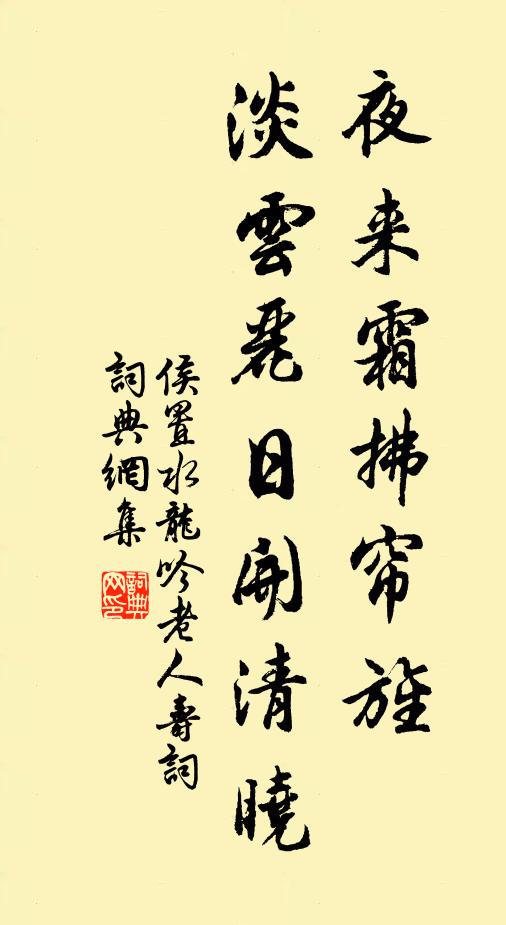 夜来霜拂帘旌
淡雲麗日開清曉
侯置水龍吟老人壽詞
詞典網集
詞典网印